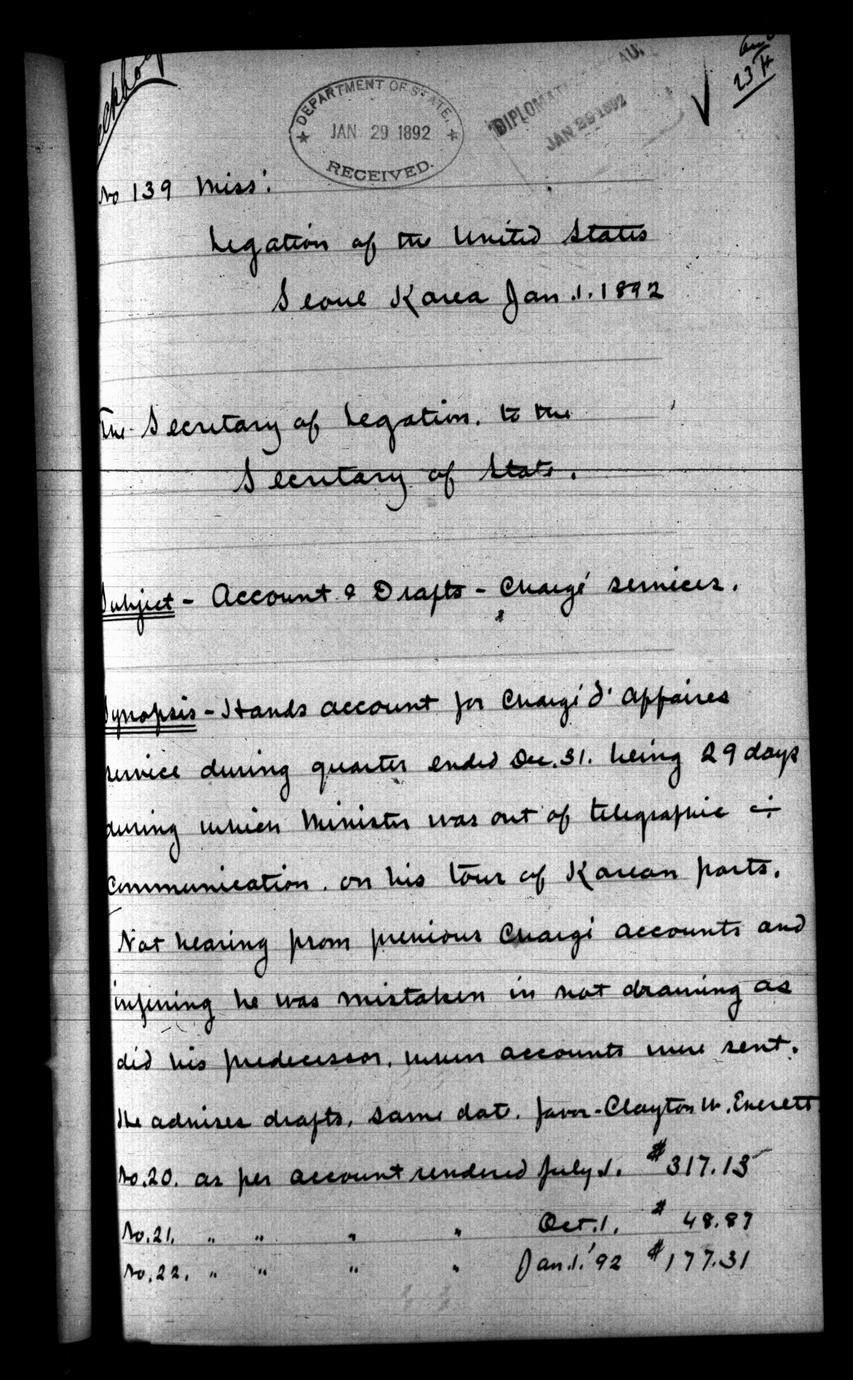 DEPARTMENT OF STATE.
JAN 29 1892
RECEIVED.
DIPLOMATIC
JAN 29 1892
23 ft
No 139 Miss'.
Legation of the United States
Seoul Korea Jan. 1. 1892
The Secretary of Legation. to the
Secretary of State.
Subject - Account & Drafts - Chargé services.
Synopsis - Hands account for Chargé d'affaires
service during quarter ended Dec. 31. being 29 days
during which Minister was out of telegraphic
communication. on his tour of Korean ports.
Not hearing from previous Chargé accounts and
infering he was mistaken in not drawing as
did his predecessor, when accounts were sent.
He advises drafts, same date. favor - Clayton W. Everett
No. 20. as per account rendered July 1. $317.15
No. 21. " " " " Oct. 1. $ 48.87
No. 22. " " " " Jan. 1. '92 $177.31